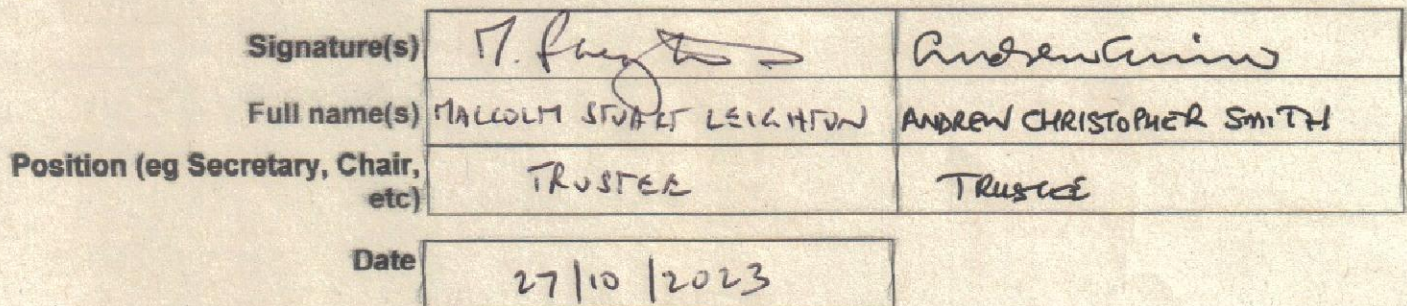 Signature(s) M. Leighton
Full name(s) MALCOLM STUART LEIGHTON ANDREW CHRISTOPHER SMITH
Position (eg Secretary, Chair, etc) TRUSTEE TRUSTEE
Date 27/10/2023